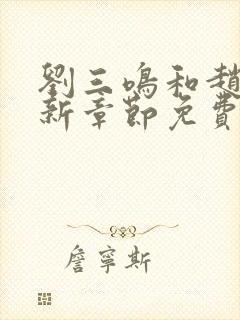 劉三鳴和趙
新章節免費
詹寧斯